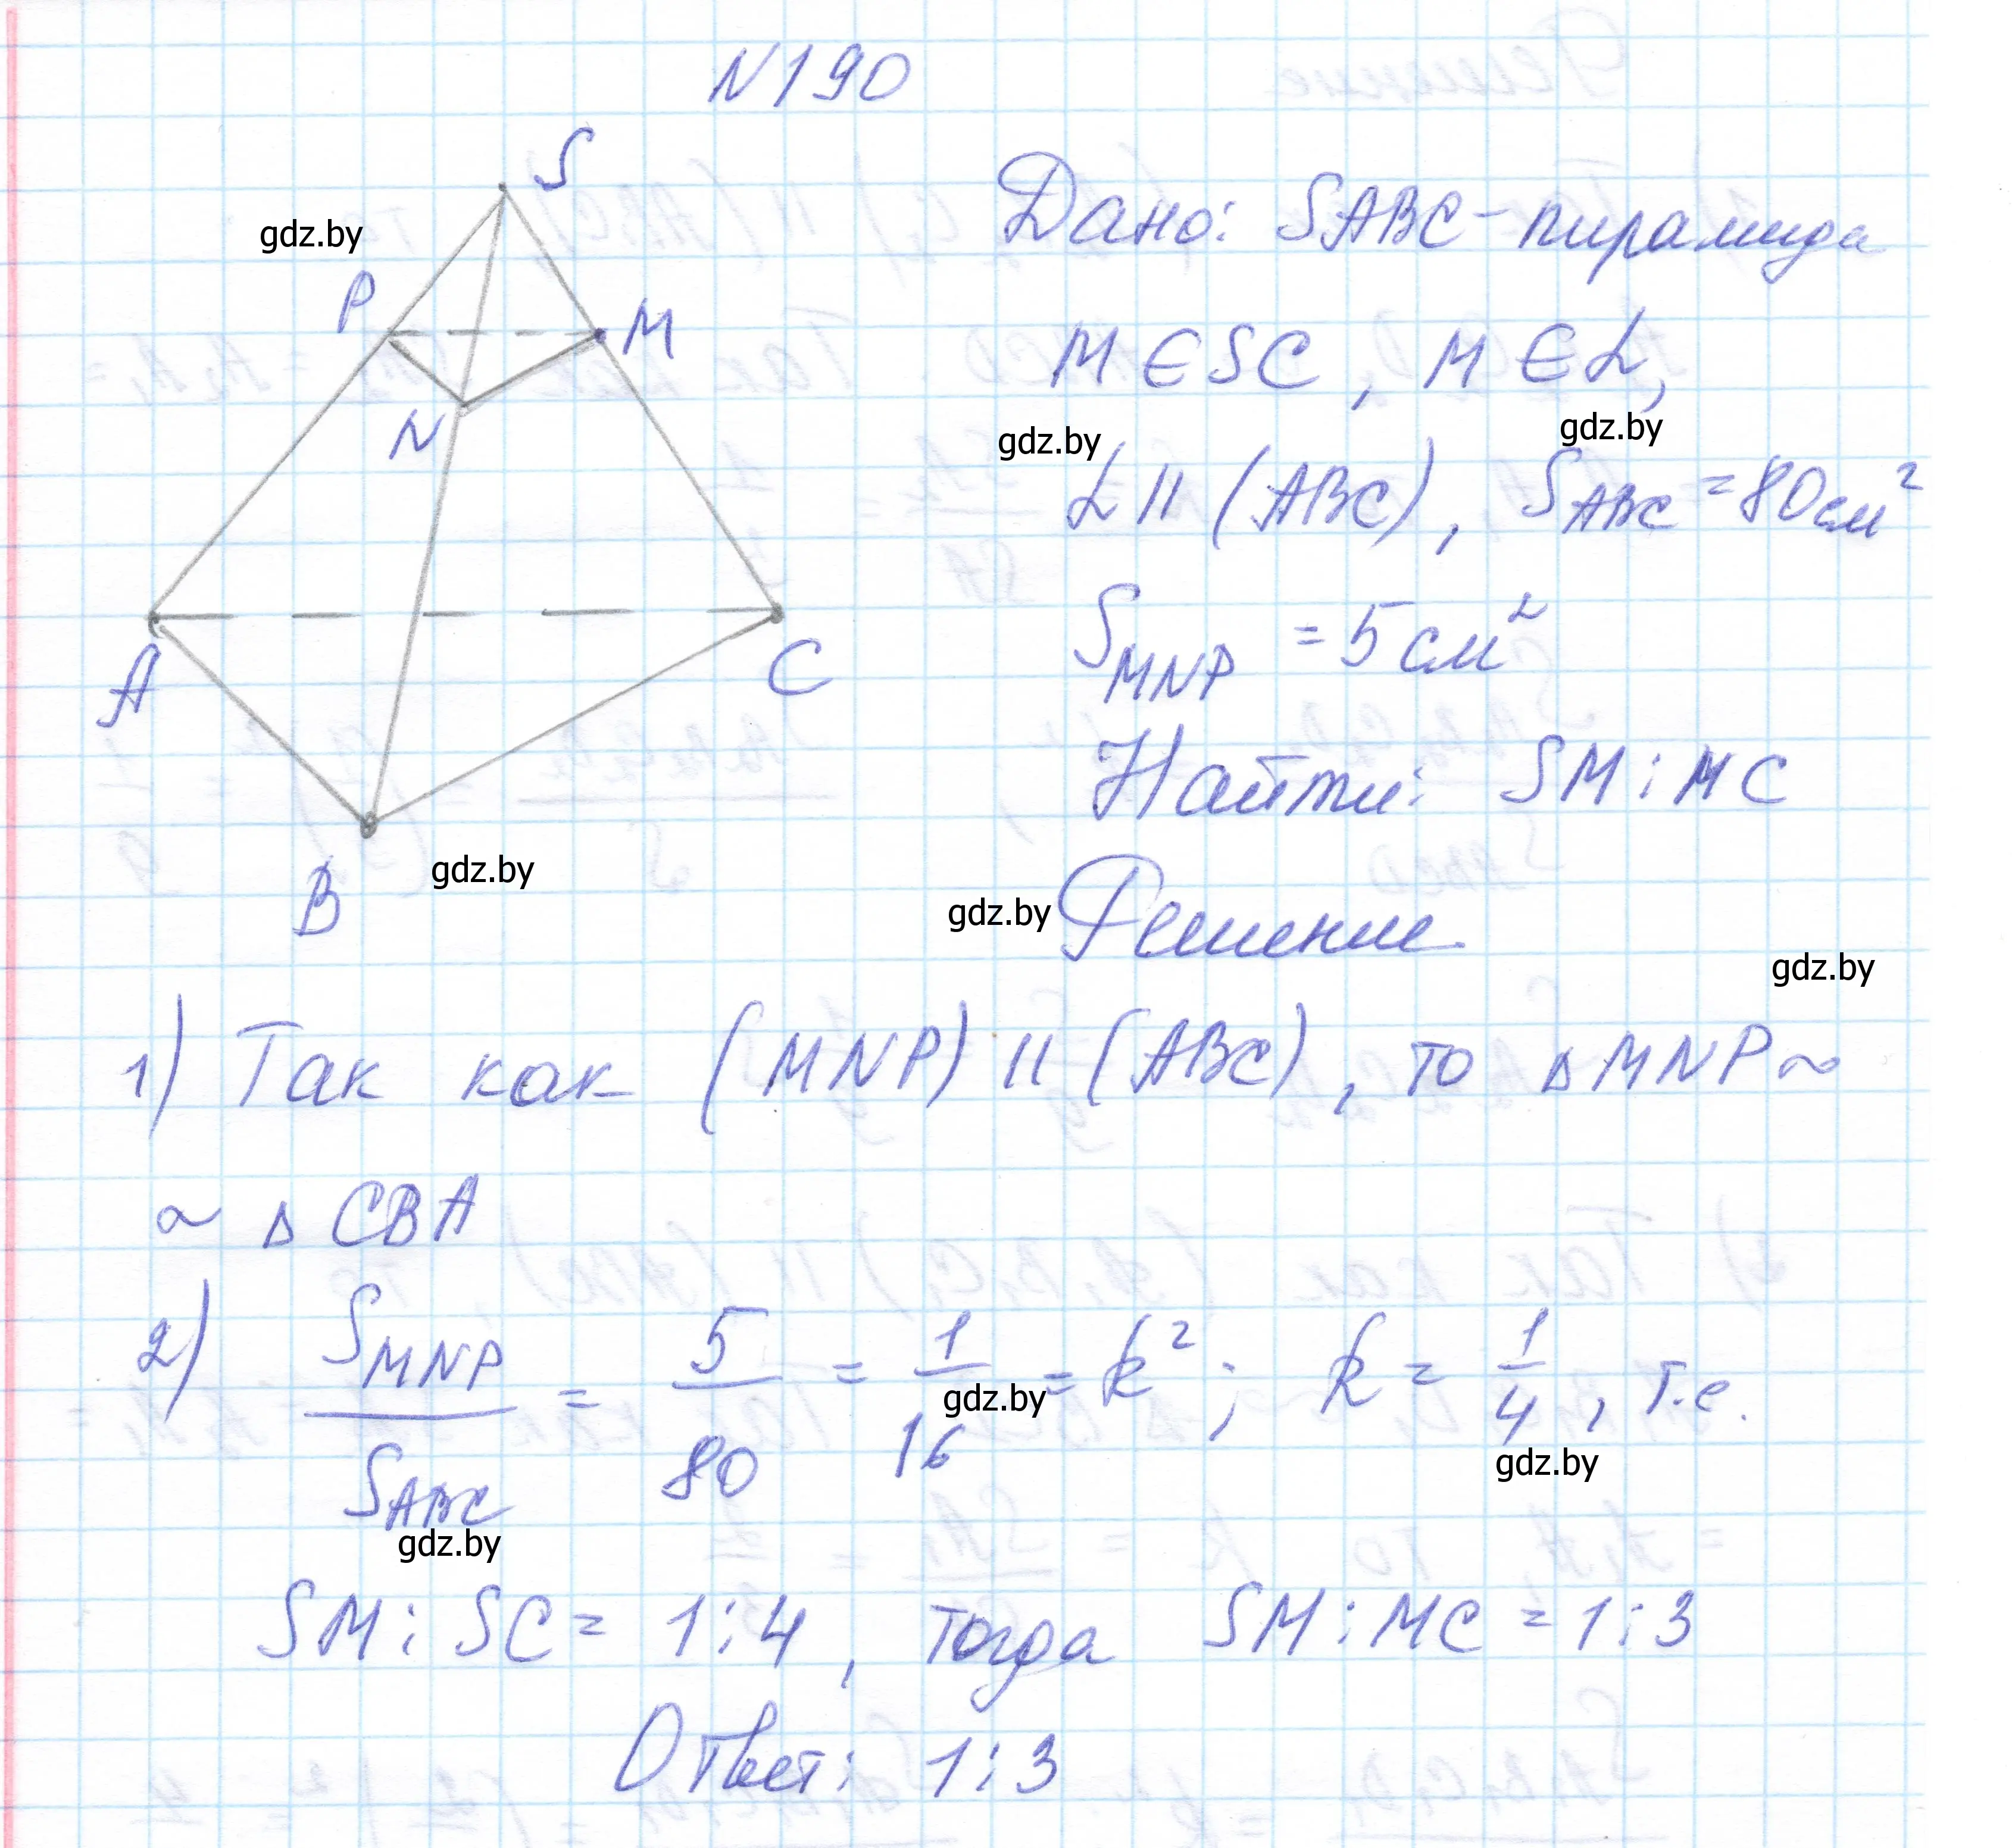 N190
S
gdz.by
P
M
N
A
C
B
gdz.by
Дано: SABC - пирамида
M ∈ SC, M ∈ α,
gdz.by
gdz.by
α || (ABC), S_ABC = 80 см²
S_MNP = 5 см²
Найти: SM : MC
gdz.by
Решение
gdz.by
1) Так как (MNP) || (ABC), то ΔMNP ~
~ ΔCBA
2) S_MNP / S_ABC = 5/80 = 1/16 = k²; k = 1/4, т.е.
gdz.by
gdz.by
gdz.by
SM : SC = 1:4, тогда SM : MC = 1:3
Ответ: 1:3